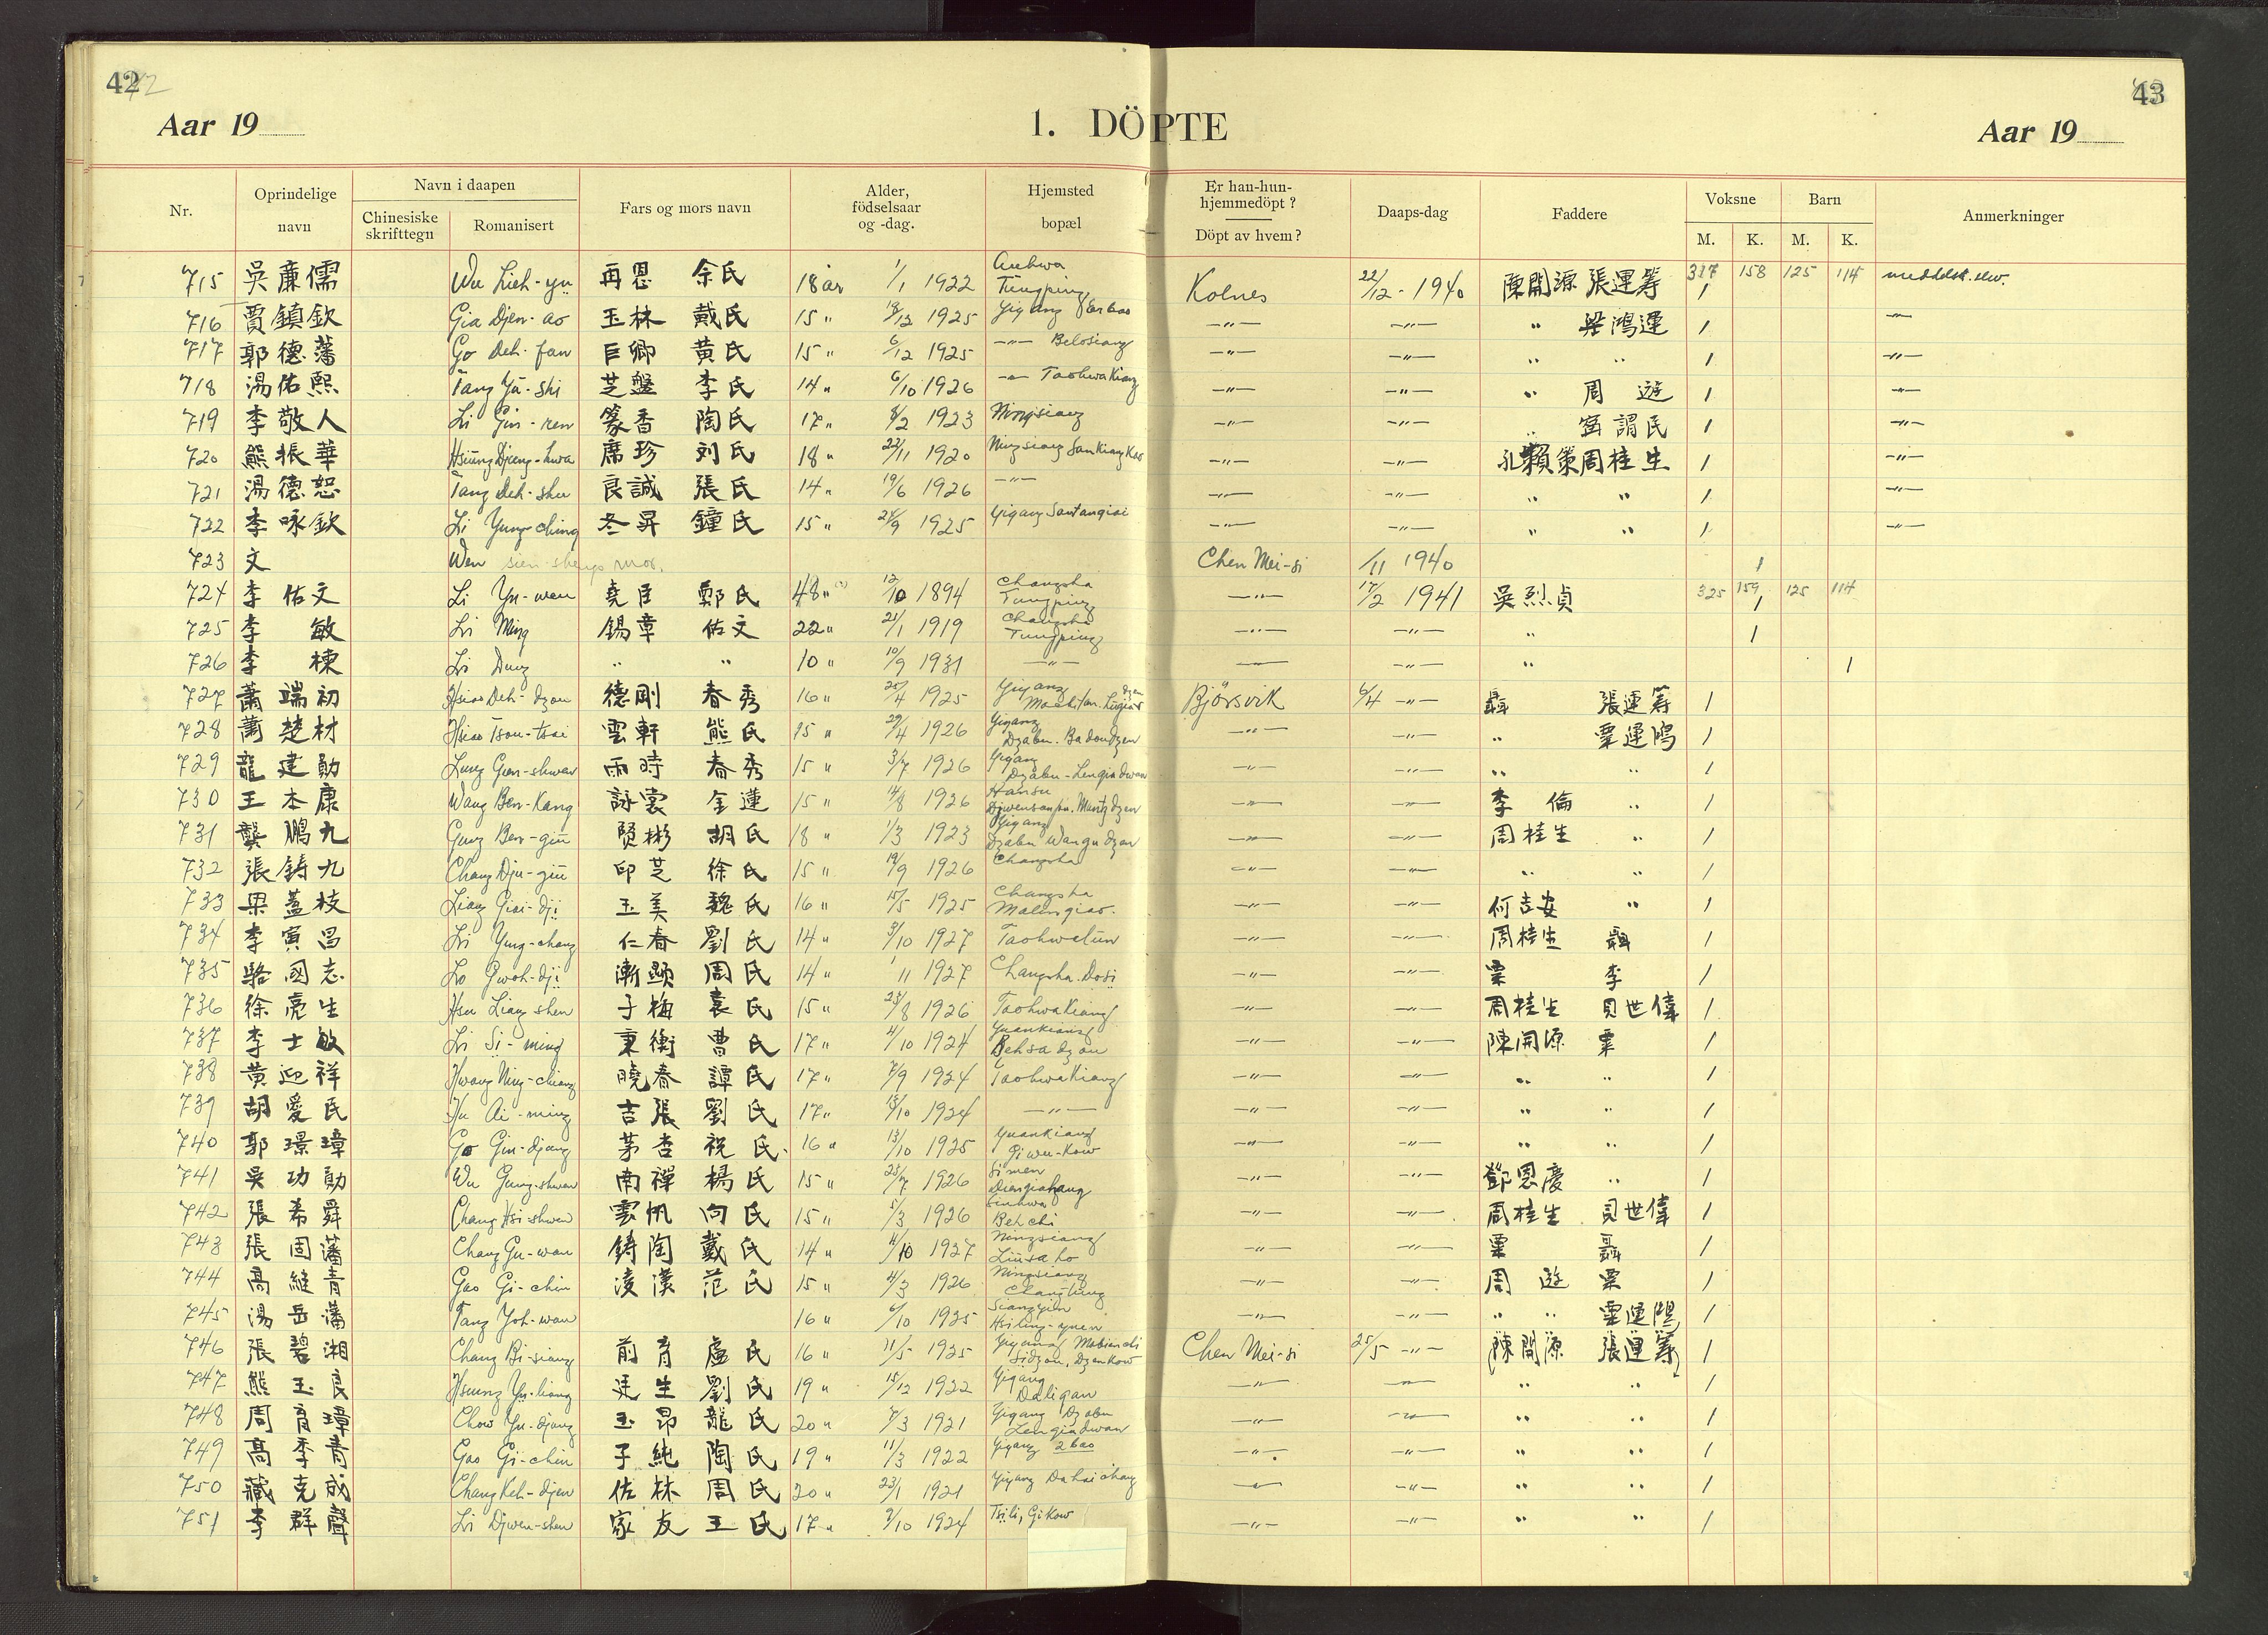 42 42
43
Aar 19
1. DÖPTE
Aar 19
Nr.
Oprindelige navn
Navn i daapen
Chinesiske skrifttegn
Romanisert
Fars og mors navn
Alder, födselsaar og -dag.
Hjemsted bopæl
Er han-hun- hjemmedöpt ?
Döpt av hvem ?
Daaps-dag
Faddere
Voksne
M.
K.
Barn
M.
K.
Anmerkninger
715 吳廉儒 Wu Lieh-yü 再恩 余氏 18 år 1/1 1922 Tungping Kolnes 22/12 - 1940 陳開源 張運籌 317 158 125 114 1
716 賈鎮欽 Gia Djen-ao 玉林 戴氏 15 " 1925 Yiyang —"— —"— " 梁鴻運 1 —"—
717 郭德藩 Go Deh-fan 巨卿 黃氏 15 " 6/12 1925 —"— Belosiang —"— —"— " " 1 —"—
718 湯佑熙 Tang Yü-shi 芝盤 李氏 14 " 6/10 1926 —"— Taohwakiang —"— —"— " 周 遊 1 —"—
719 李敬人 Li Gin-ren 篆香 陶氏 17 " 8/2 1923 Ningsiang —"— —"— " 謂民 1 —"—
720 熊振華 Hsiung Djeng-hwa 席珍 刘氏 18 " 22/11 1920 Ningsiang —"— —"— 周桂生 1 —"—
721 湯德恕 Tang Deh-shu 良誠 張氏 14 " 19/6 1926 —"— —"— —"— " " 1 —"—
722 李咏欽 Li Yung-ching 冬昇 鐘氏 15 " 24/9 1925 —"— —"— " " 1 —"—
723 文 Wen sien-shengs mor. Chen Mei-si /11 1940 1
724 李佑文 Li Yu-wen 堯臣 鄭氏 48 " 12/10 1894 Changsha Tungping —"— 17/2 1941 吳烈貞 325 159 125 114 1
725 李 敏 Li Ming 錫章 佑文 22 " 21/1 1919 Changsha Tungping —"— —"— " 1
726 李 棟 Li Dung " " 10 " 10/9 1931 —"— —"— —"— " 1
727 蕭端初 Hsiao Deh-dzou 德剛 春秀 16 " 25/4 1925 Yiyang Björsvik 6/4 —"— 聶 張運籌 1
728 蕭楚材 Hsiao Tsou-tsai 雲軒 熊氏 15 " 29/4 1926 Yiyang Dzabu. Badoudzen —"— —"— " 粟運鴻 1
729 龍建勛 Lung Gien-shwen 雨時 春秀 15 " 3/7 1926 Yiyang Dzabu-Lengiadwan —"— —"— " " 1
730 王本康 Wang Ben-Kang 詠裳 金蓮 15 " 14/8 1926 —"— —"— 李 倫 " 1
731 龔鵬九 Gung Ben-giu 賢彬 胡氏 18 " 1/3 1923 Yiyang —"— —"— 周桂生 " 1
732 張鋳九 Chang Dju-giu 印芝 徐氏 15 " 19/9 1926 Changsha —"— —"— " " 1
733 梁蓋枝 Liang Giai-dji 玉美 魏氏 16 " 15/5 1925 Changsha Malingiao. —"— —"— 何吉安 " 1
734 李寅昌 Li Ying-chang 仁春 劉氏 14 " 3/10 1927 Taohwalun —"— —"— 周桂生 聶 1
735 駱國志 Lo Gwoh-dji 漸顯 周氏 14 " 1/11 1927 Changsha. Dosi —"— —"— 粟 李 1
736 徐亮生 Hsu Liang-shen 子梅 袁氏 15 " 23/8 1926 Taohwakiang —"— —"— 周桂生 貝世偉 1
737 李士敏 Li Si-ming 秉衡 曹氏 17 " 4/10 1924 Yuankiang —"— —"— 陳開源 粟 1
738 黃迎祥 Hwang Ning-chiang 曉春 譚氏 17 " 7/9 1924 Taohwakiang —"— —"— " " 1
739 胡愛民 Hu Ai-ming 吉張 劉氏 17 " 15/10 1924 —"— —"— —"— " " 1
740 郭璟璋 Go Gin-djang 茅杏 祝氏 16 " 13/10 1925 Yuankiang Giwu-kow —"— —"— " " 1
741 吳功勛 Wu Gung-shwen 南禪 楊氏 15 " 25/7 1926 Simen —"— —"— 鄧恩慶 " 1
742 張希舜 Chang Hsi-shwen 雲帆 向氏 15 " 5/3 1926 Behchi —"— —"— 周桂生 貝世偉 1
743 張固藩 Chang Gu-wan 鋳陶 戴氏 14 " 11/10 1927 Ningsiang Liusa ho —"— —"— 粟 聶 1
744 高繼青 Gao Gi-chin 淩漢 范氏 15 " 4/3 1926 Ningsiang —"— —"— 周 遊 粟 1
745 湯岳藩 Tang Yoh-wan 16 " 6/10 1925 —"— —"— " " 粟運鴻 1
746 張碧湘 Chang Bi-siang 前育 盧氏 16 " 11/5 1925 Yiyang Chen Mei-si 25/5 —"— (陳開源 張運籌) 1
747 熊玉良 Hsiung Yu-liang 廷生 劉氏 19 " 15/12 1922 Yiyang —"— —"— " " 1
748 周育璋 Chow Yu-djang 玉昂 龍氏 20 " 7/3 1921 Yiyang Dzabu Lengiadwan —"— —"— " " 1
749 高季青 Gao Gi-chin 子純 陶氏 19 " 11/3 1922 Yiyang 2 bao —"— —"— " " 1
750 臧克成 Chang Keh-djen 佐林 周氏 20 " 23/1 1921 Yiyang —"— —"— " " 1
751 李群聲 Li Djwen-shen 家友 王氏 17 " 9/10 1924 Tsili, Gikow —"— —"— " " 1